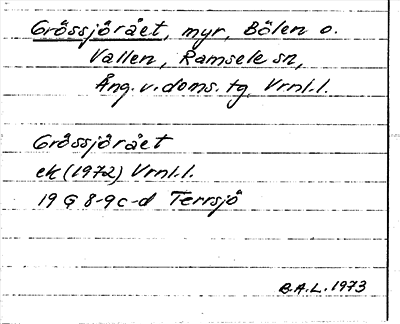 Gråssjörået, myr, Bölen o.
Vallen, Ramsele sn,
Ång. v. doms. tg. Vrnl.l.
Gråssjörået
ek (1972) Vrnl.l.
19 G 8-9 c-d Terrsjö
B.A.L. 1973